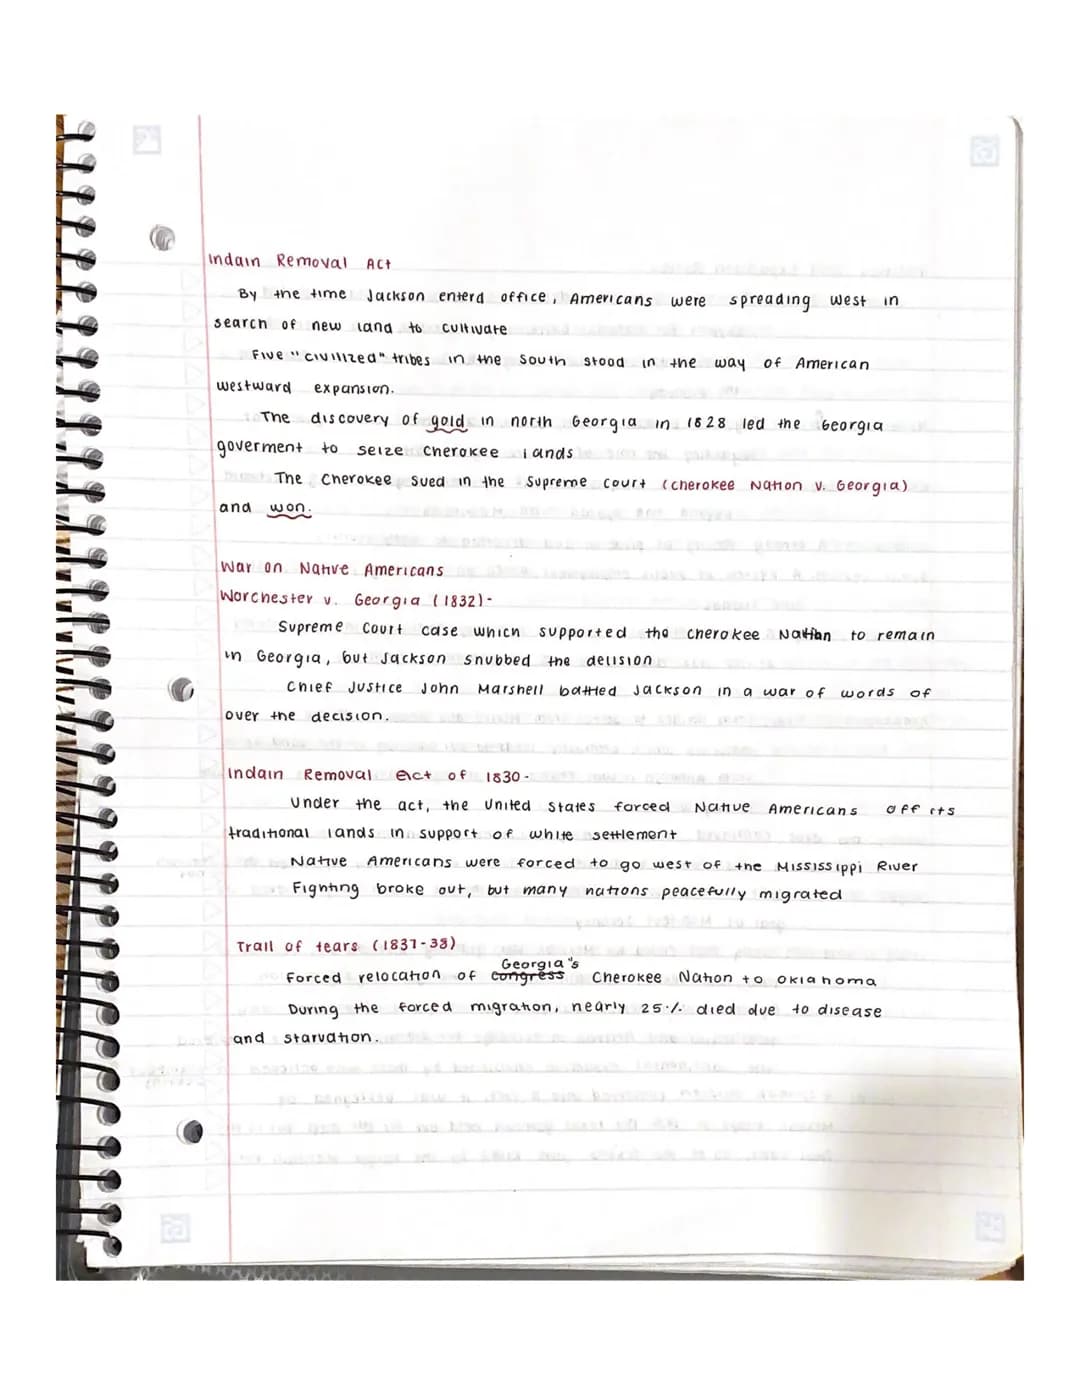 Indain Removal Act
By the time Jackson enterd office, Americans were spreading west in
search of new land to cultivate
Five "civilized" tribes in the South stood in the way of American
westward expansion.
The discovery of gold in north Georgia in 1828 led the Georgia
goverment to seize Cherokee lands
The Cherokee sued in the Supreme court (cherokee Nation v. Georgia)
and won.
War on Native Americans
Worchester v. Georgia (1832)-
Supreme Court case which supported the cherokee Nation to remain
in Georgia, but Jackson snubbed the delision
Chief Justice John Marshell battled Jackson in a war of words of
over the decision.
Indain Removal act of 1830-
Under the act, the United States forced Native Americans off its
traditional lands in support of white settlement
Native Americans were forced to go west of the Mississippi River
Fighting broke out, but many nations peacefully migrated
Trail of tears (1837-38)
Georgia's
Forced relocation of congress Cherokee Nation to Oklahoma
During the forced migration, nearly 25% died due to disease
and starvation.